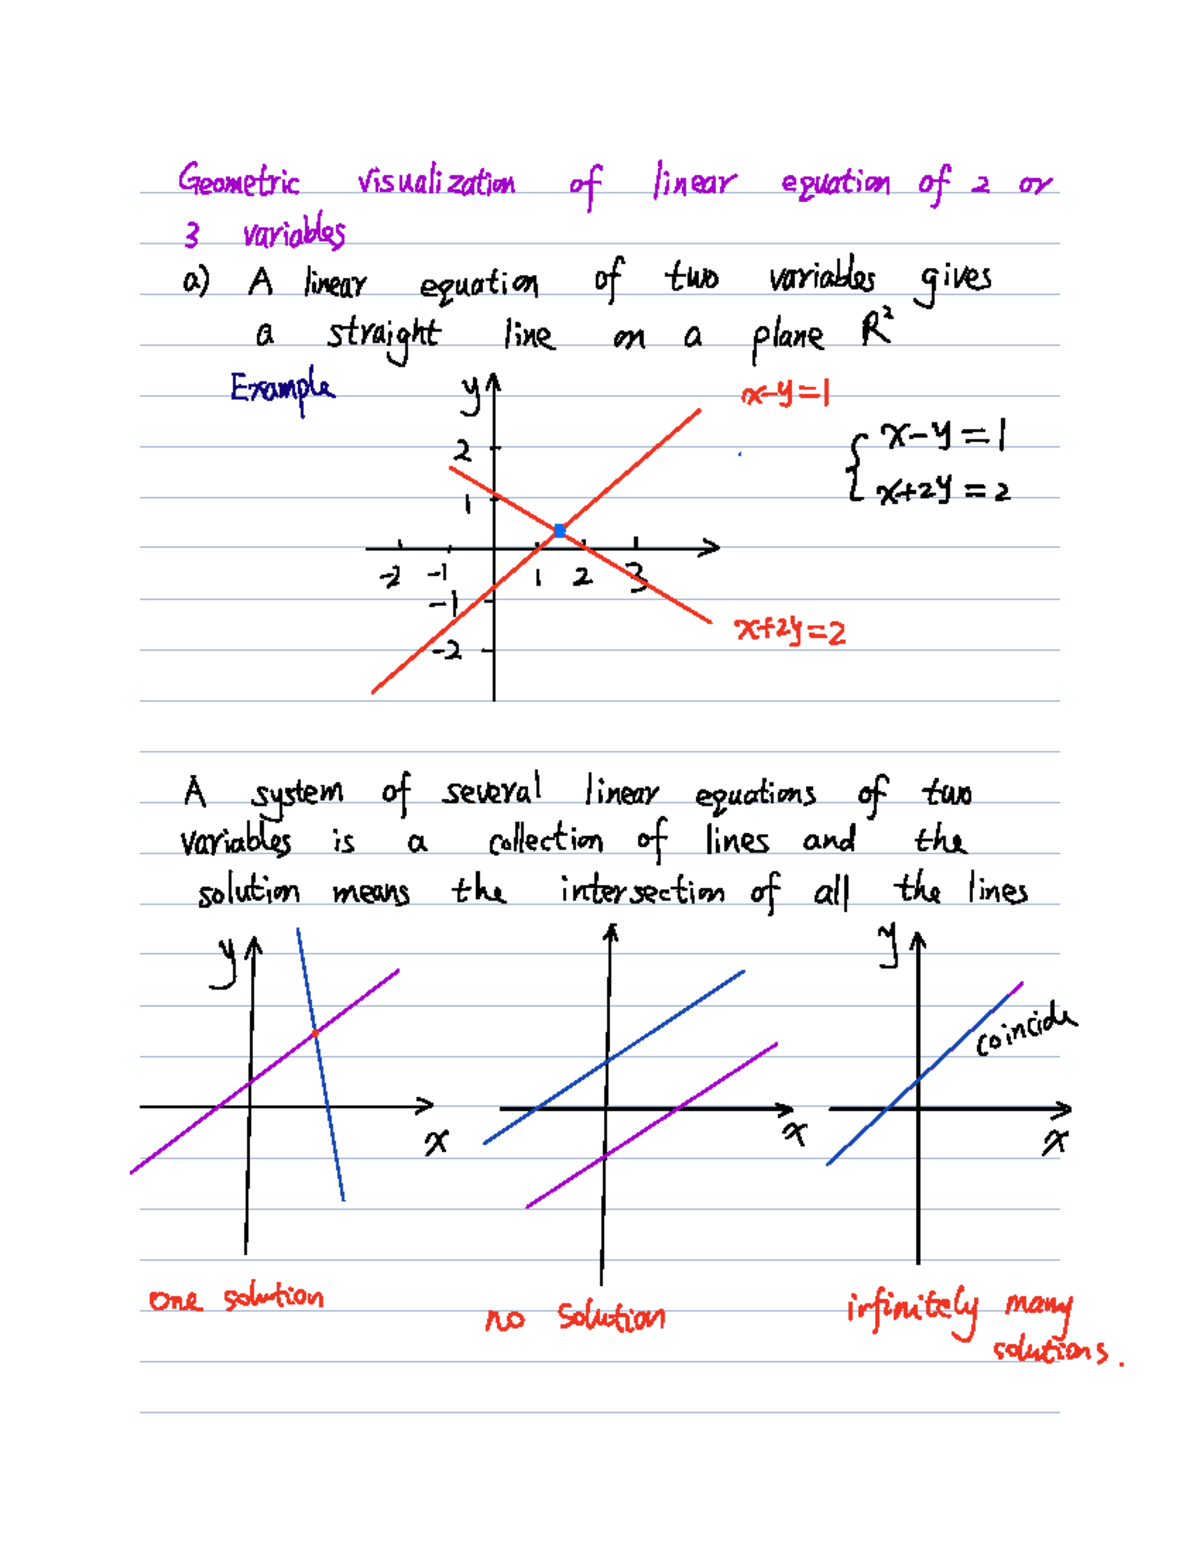 Geometric visualization of linear equation of 2 or
3 variables
a) A linear equation of two variables gives
a straight line on a plane R²
Example
y
x-y=1
2
1
-2 -1 1 2 3
-1
-2
x+2y=2
{ x-y=1
x+2y=2
A system of several linear equations of two
variables is a collection of lines and the
solution means the intersection of all the lines
y
x
x
y
coincide
x
one solution
no solution
infinitely many
solutions.